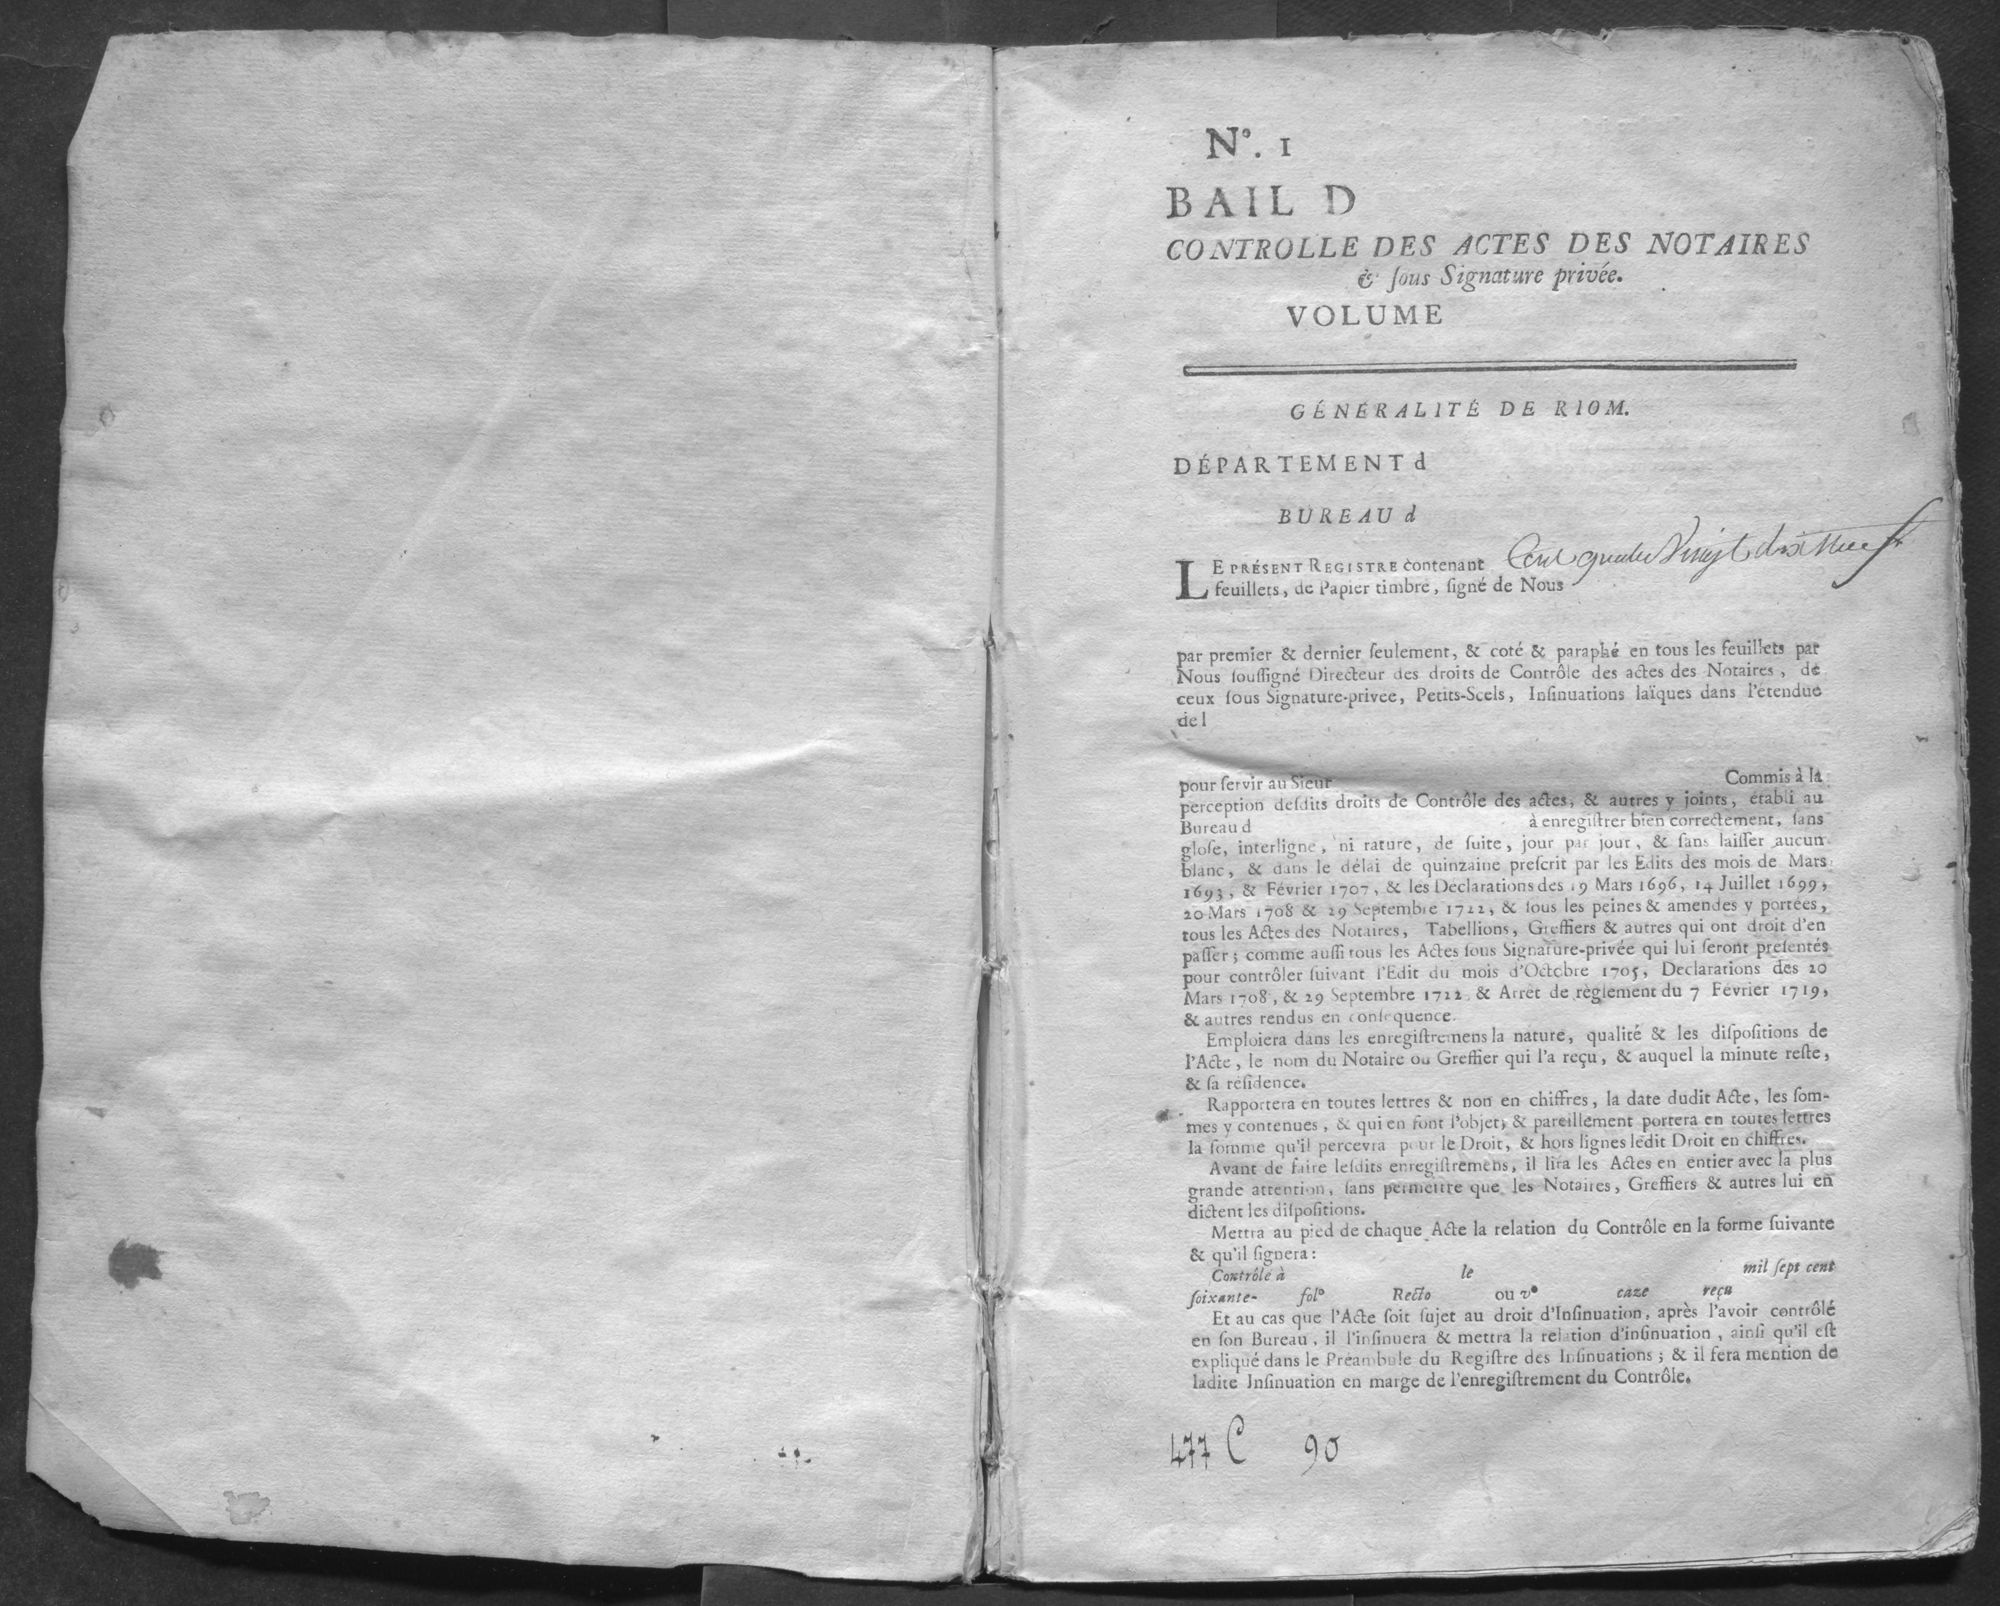 Nº. 1
BAIL D
CONTROLLE DES ACTES DES NOTAIRES
& ſous Signature privée.
VOLUME
GÉNÉRALITÉ DE RIOM.
DÉPARTEMENT d
BUREAU d
LE PRÉSENT REGISTRE contenant Cent quatre Vingt dix Neuf
feuillets, de Papier timbré, ſigné de Nous
par premier & dernier ſeulement, & coté & paraphé en tous les feuillets par
Nous ſouſſigné Directeur des droits de Contrôle des actes des Notaires, de
ceux ſous Signature-privée, Petits-Scels, Inſinuations laïques dans l'étendue
de l
pour ſervir au Sieur Commis à la
perception deſdits droits de Contrôle des actes, & autres y joints, établi au
Bureau d à enregiſtrer bien correctement, ſans
gloſe, interligne, ni rature, de ſuite, jour par jour, & ſans laiſſer aucun
blanc, & dans le délai de quinzaine preſcrit par les Edits des mois de Mars
1693, & Février 1707, & les Déclarations des 19 Mars 1696, 14 Juillet 1699,
20 Mars 1708 & 29 Septembre 1722, & ſous les peines & amendes y portées,
tous les Actes des Notaires, Tabellions, Greffiers & autres qui ont droit d'en
paſſer; comme auſſi tous les Actes ſous Signature-privée qui lui ſeront préſentés
pour contrôler ſuivant l'Edit du mois d'Octobre 1705, Déclarations des 20
Mars 1708, & 29 Septembre 1722, & Arrêt de règlement du 7 Février 1719,
& autres rendus en conſequence.
Emploiera dans les enregiſtremens la nature, qualité & les diſpoſitions de
l'Acte, le nom du Notaire ou Greffier qui l'a reçu, & auquel la minute reſte,
& ſa réſidence.
Rapportera en toutes lettres & non en chiffres, la date dudit Acte, les ſom-
mes y contenues, & qui en font l'objet, & pareillement portera en toutes lettres
la ſomme qu'il percevra pour le Droit, & hors lignes ledit Droit en chiffres.
Avant de faire leſdits enregiſtremens, il lira les Actes en entier avec la plus
grande attention, ſans permettre que les Notaires, Greffiers & autres lui en
dictent les diſpoſitions.
Mettra au pied de chaque Acte la relation du Contrôle en la forme ſuivante
& qu'il ſignera:
Contrôlé à le mil ſept cent
ſoixante- folº Recto ou vº caze reçu
Et au cas que l'Acte ſoit ſujet au droit d'Inſinuation, après l'avoir contrôlé
en ſon Bureau, il l'inſinuera & mettra la relation d'inſinuation, ainſi qu'il eſt
expliqué dans le Préambule du Regiſtre des Inſinuations; & il fera mention de
ladite Inſinuation en marge de l'enregiſtrement du Contrôle.
477 C 90